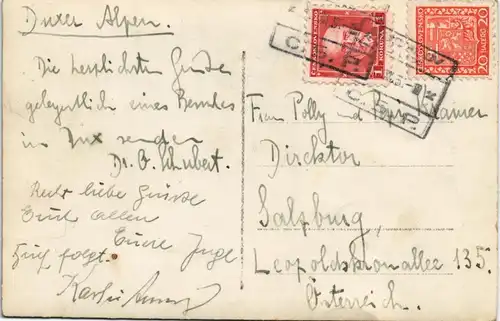 Duxer Alpen.
Die herzlichsten Grüße
gelegentlich eines Besuches
in Dux senden
Dr. O. Schubert.
Recht liebe Grüsse
Euch allen
Eure Inge
folgt.
Frau Polly und
Direktor
Salzburg,
Leopoldskronallee 135.
Österreich.
1 KORUNA 1
ČESKOSLOVENSKO
20 HALÉŘŮ 20